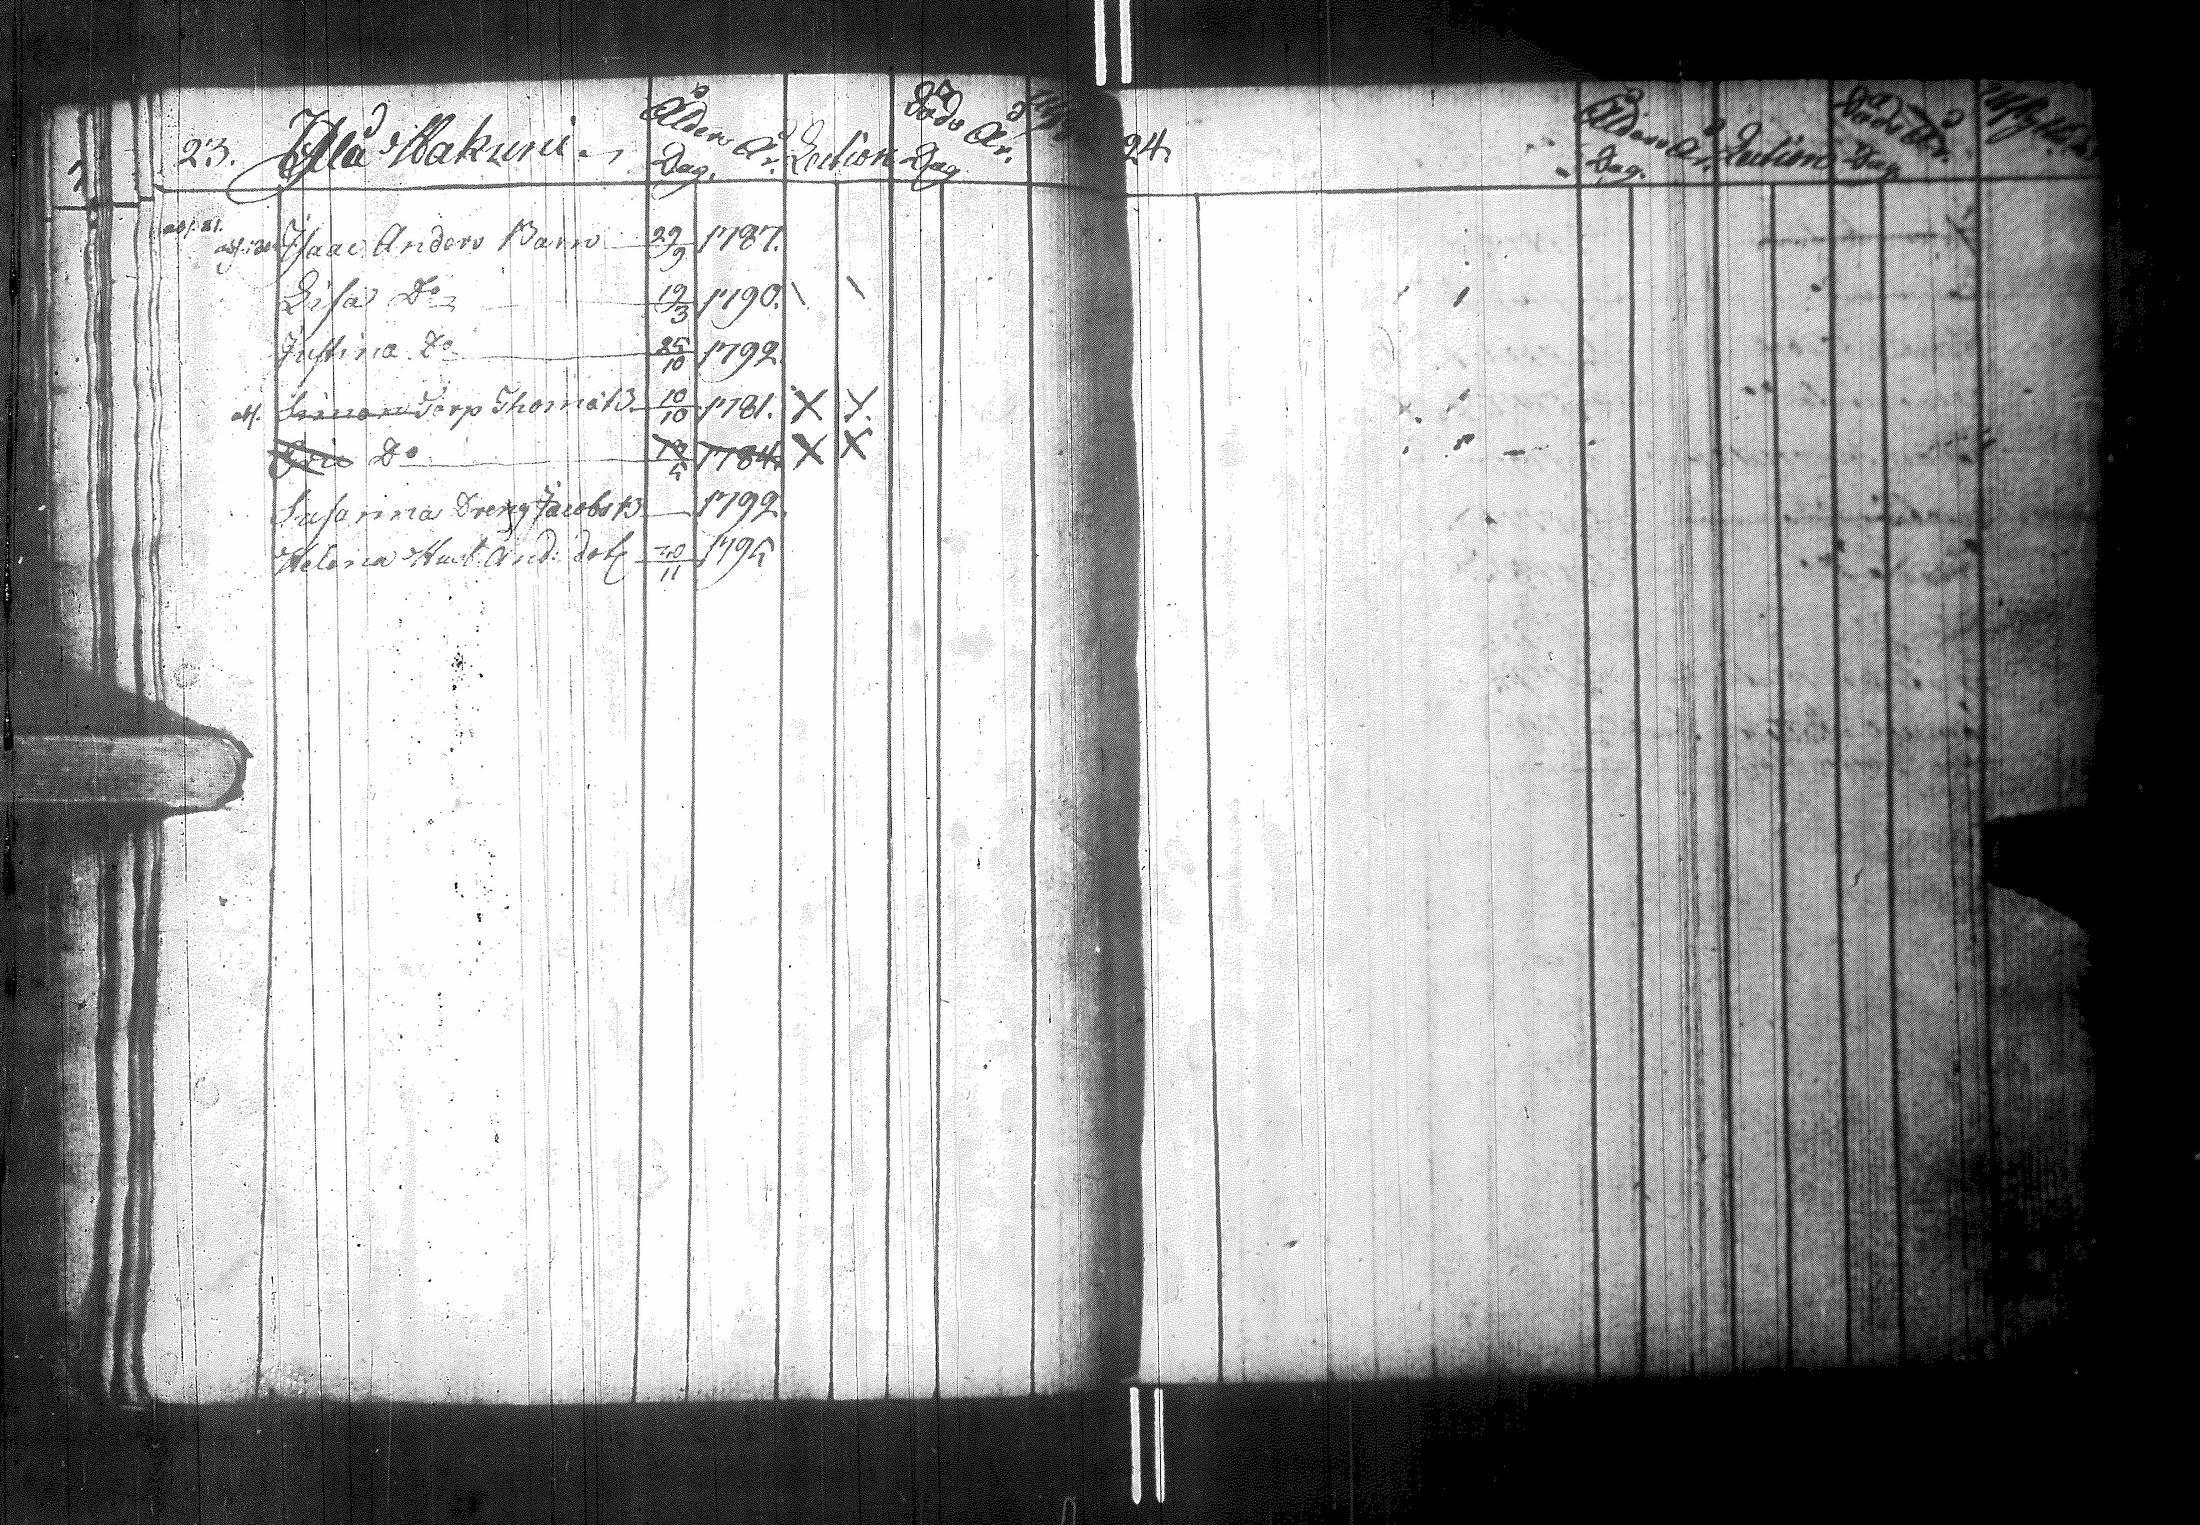 23. Yllä Makuni. Ålders Dag. År. Lection Döds Dag År.
Isaac Anders Barn 29/9 1787.
Lisa Do 19/3 1790.
Justina Do 25/10 1792
Simon Torp Thomæ B. 10/10 1781. X X
Eric Do 1784. X X
Susanna Dreng Jacobs B 1792.
Helena And: dotr 20/11 1795
24. Ålders Dag. År. Lection Döds Dag År.